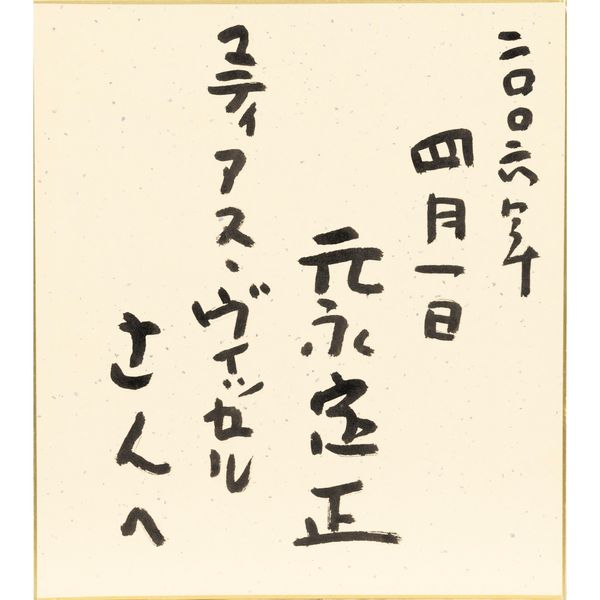 二〇〇六年
四月一日
元永定正
マティアス・ヴィッセル
さんへ